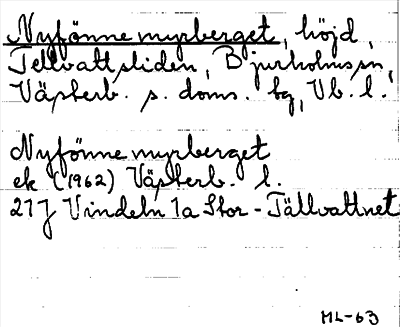 Nyfönnemyrberget, höjd,
Tellvattsliden, Bjurholms sn,
Västerb. s. doms. bg, Vb. l.
Nyfönnemyrberget
ek (1962) Västerb. l.
21J Vindeln 1a Stor-Tällvattnet
ML-63